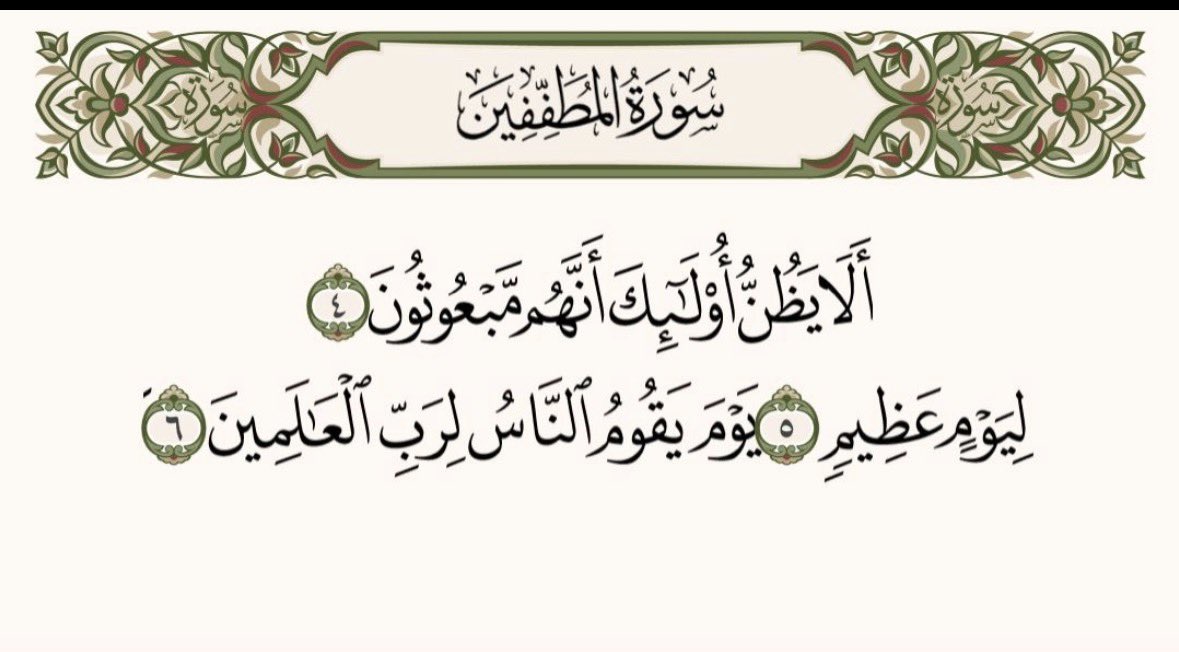 سُورَةٌ سُورَةُ المُطَفِّفِينَ سُورَةٌ
أَلَا يَظُنُّ أُوْلَٰٓئِكَ أَنَّهُم مَّبۡعُوثُونَ ٤
لِيَوۡمٍ عَظِيمٖ ٥ يَوۡمَ يَقُومُ ٱلنَّاسُ لِرَبِّ ٱلۡعَٰلَمِينَ ٦